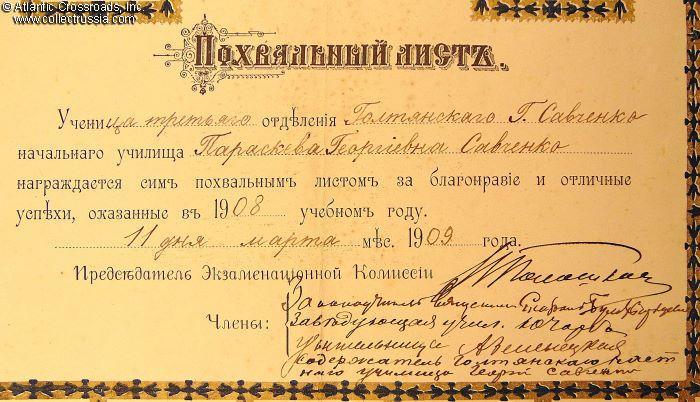 © Atlantic Crossroads, Inc.
www.collectrussia.com
Похвальный листъ.
Ученица третьяго отдѣленія Голтянскаго Г. Савченко
начальнаго училища Параскева Георгіевна Савченко
награждается симъ похвальнымъ листомъ за благонравіе и отличные
успѣхи, оказанные въ 1908 учебномъ году.
11 дня марта мѣс. 1909 года.
Предсѣдатель Экзаменаціонной Комиссіи
Законоучитель Священник
Члены: Завѣдующая учил.
Учительница
содержатель Голтянскаго част
наго училища Георгій Савченко